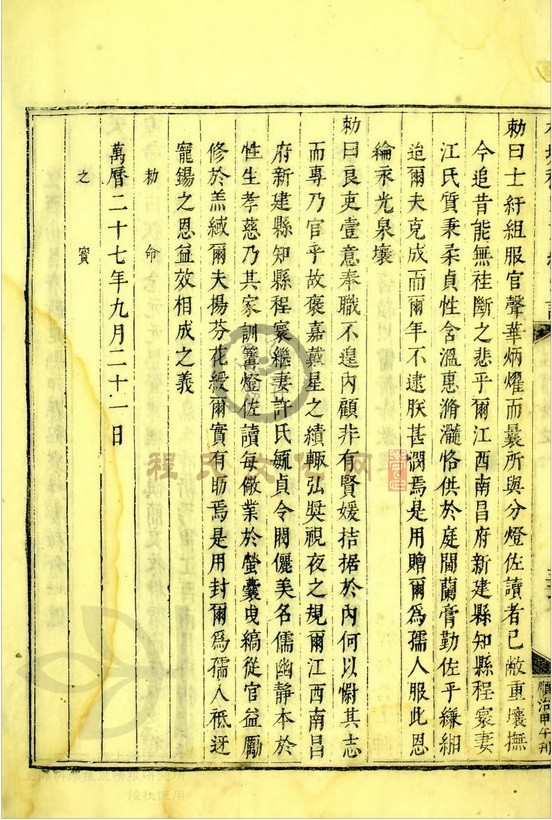 勅曰士紆組服官聲華炳燿而曩所與分燈佐讀者已敝重壤撫
今追昔能無袿斷之悲乎爾江西南昌府新建縣知縣程寰妻
江氏質秉柔貞性含溫惠滫瀡恪供於庭闈蘭膏勤佐乎縹緗
迨爾夫克成而爾年不逮朕甚憫焉是用贈爾為孺人服此恩
綸永光泉壤
勅曰良吏壹意奉職不遑內顧非有賢媛拮据於內何以慰其志
而專乃官乎故褒嘉戴星之績輙弘奬視夜之規爾江西南昌
府新建縣知縣程寰繼妻許氏毓貞令閥儷美名儒幽靜本於
性生孝慈乃其家訓篝燈佐讀每儆業於螢囊曳縞從官益勵
修於羔緎爾夫揚芬花綬爾實有助焉是用封爾為孺人祗迓
寵錫之恩益效相成之義
萬曆二十七年九月二十一日
勅命
之寳
順治甲午刊
程氏文化网